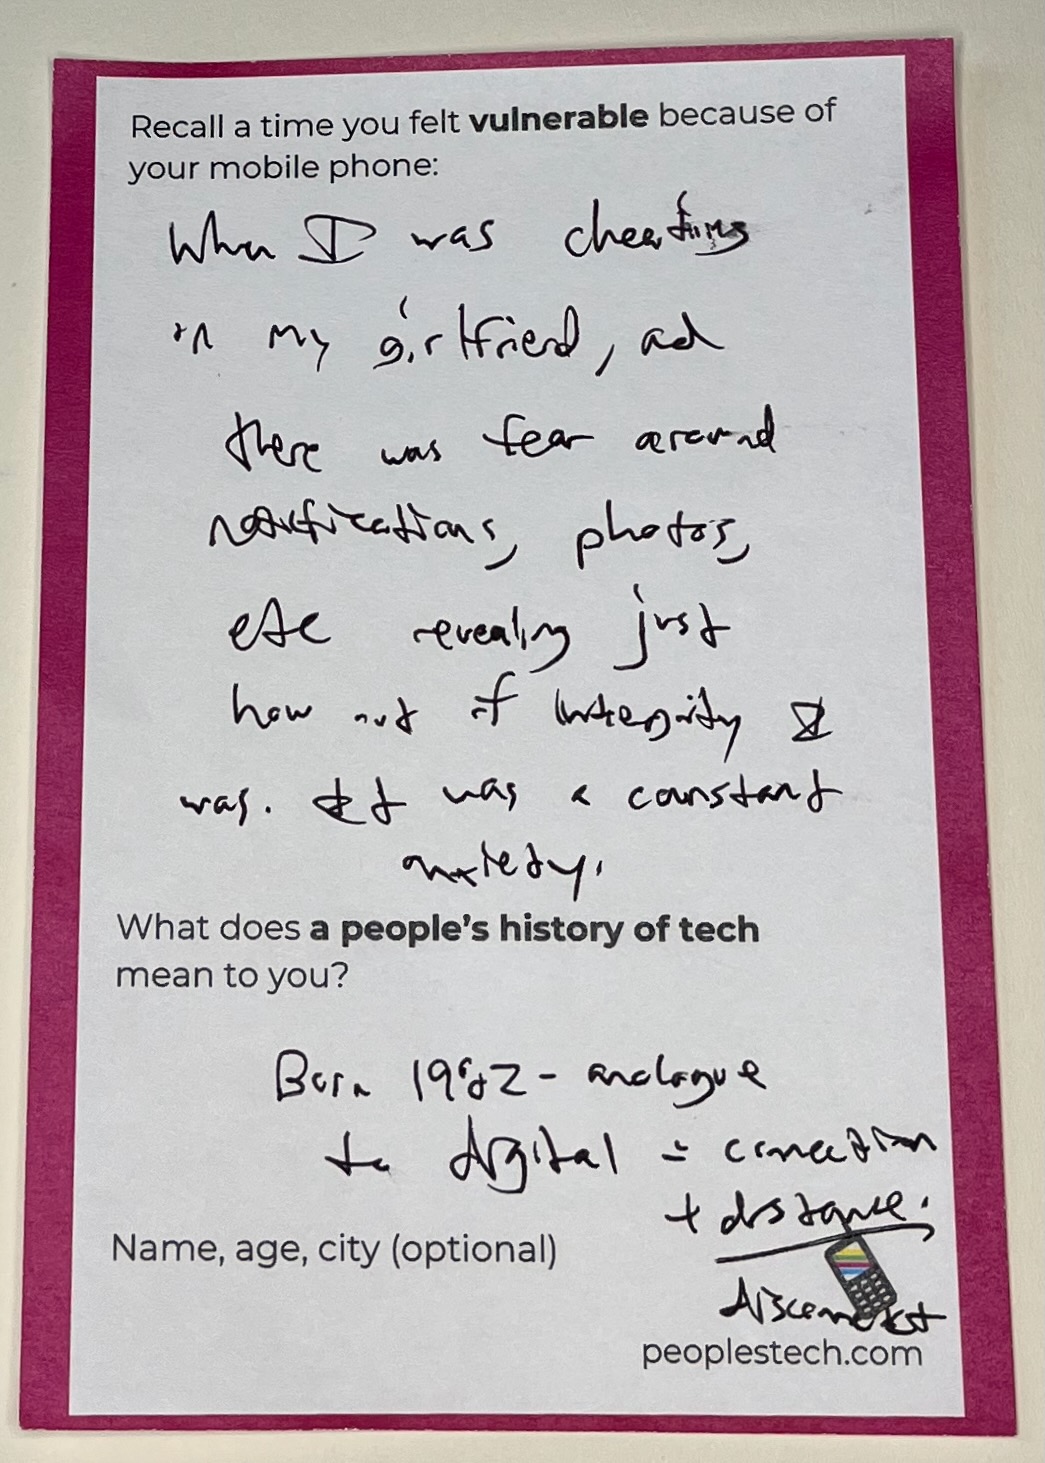 Recall a time you felt vulnerable because of
your mobile phone:
When I was cheating
on my girlfriend, ad
there was fear around
notifications, photos,
etc revealing just
how out of integrity I
was. It was a constant
anxiety.
What does a people's history of tech
mean to you?
Born 1982 - analogue
to digital = connection
+ distance.
Name, age, city (optional)
peoplestech.com